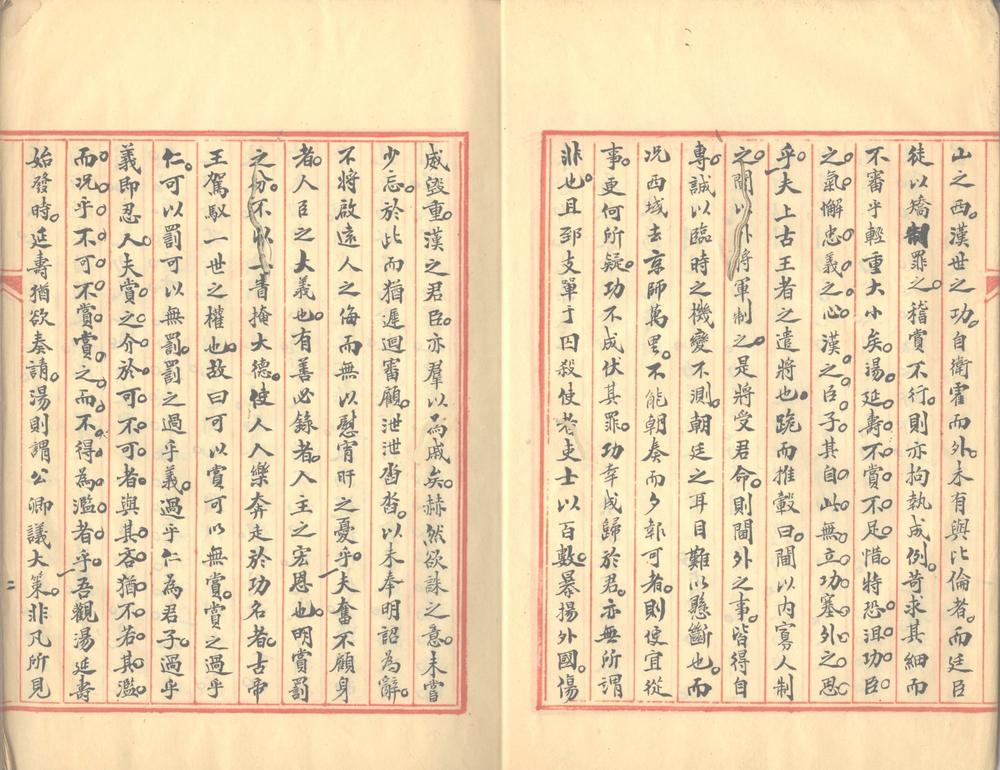 山之西。漢世之功。自衛霍而外。未有與比倫者。而廷臣
徒以矯制罪之。稽賞不行。則亦拘執成例。苛求其細而
不審乎輕重大小矣。湯延壽不賞不足惜特恐沮功臣
之氣懈忠義之心漢之臣子其自此無立功塞外之思
乎。夫上古王者之遣將也。跪而推轂曰。閫以內寡人制
之。閫以外將軍制之。是將受君命。則閫外之事。皆得自
專。誠以臨時之機變不測。朝廷之耳目難以懸斷也。而
況西域去京師萬里。不能朝奏而夕報可者。則便宜從
事。更何所疑。功不成伏其罪。功幸成歸於君。亦無所謂
非也。且郅支單于囚殺使老吏士以百數。暴揚外國。傷
威毀重。漢之君臣。亦羣以為戚矣。赫然欲誅之意。未嘗
少忘。於此而猶遲迴審顧。泄泄沓沓。以未奉明詔為辭。
不將啟遠人之侮而無以慰宵旰之憂乎。夫奮不顧身
者。人臣之大義也。有善必錄者。人主之宏恩也。明賞罰
之份。不以一眚掩大德。使人人樂奔走於功名者。古帝
王駕馭一世之權也。故曰可以賞可以無賞。賞之過乎
仁。可以罰可以無罰。罰之過乎義。過乎仁為君子。過乎
義即忍人。夫賞之介於可不可者與其吝猶不若其濫
而況乎不可不賞賞之而不得為濫者乎。吾觀湯延壽
始發時。延壽猶欲奏請。湯則謂公卿議大策。非凡所見
二